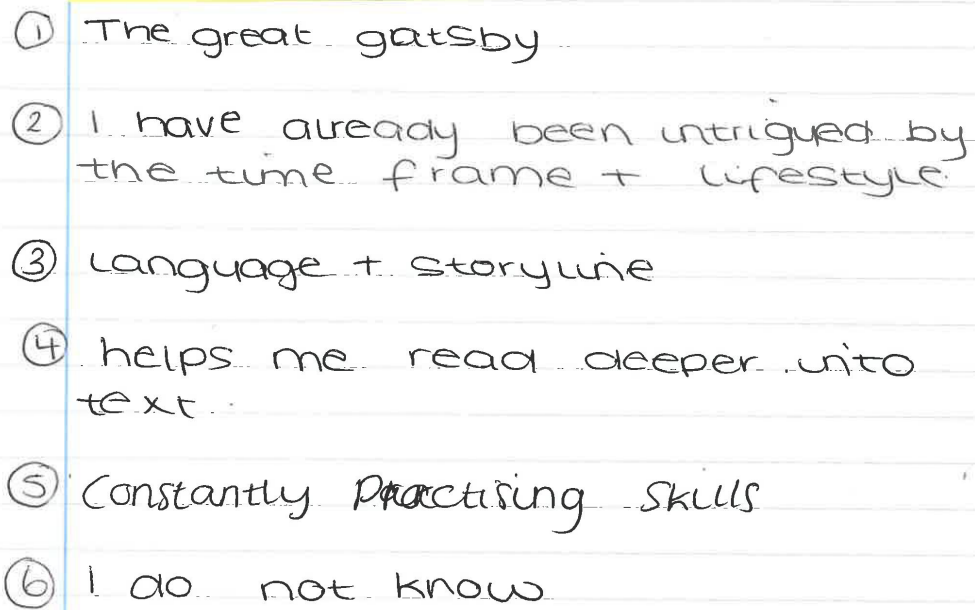 ① The great gatsby
② I have already been intrigued by
the time frame + lifestyle.
③ Language + storyline
④ helps me read deeper into
text.
⑤ Constantly Practising Skills
⑥ I do not know